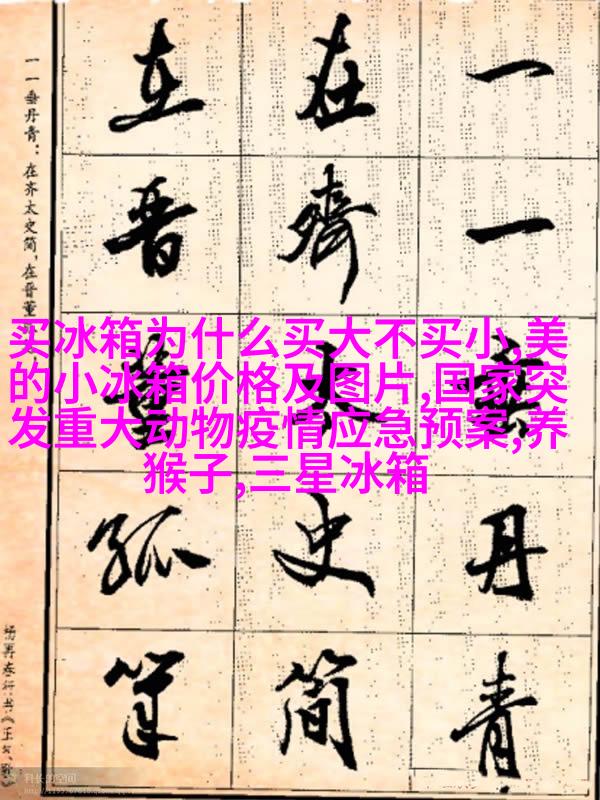 一一垂丹青
在齊太史简
在晋董狐筆
一一垂丹青：在齐太史简，在晋董
杨再春行书《正气
买冰箱为什么买大不买小,美
的小冰箱价格及图片,国家突
发重大动物疫情应急预案,养
猴子,三星冰箱
科长的空间